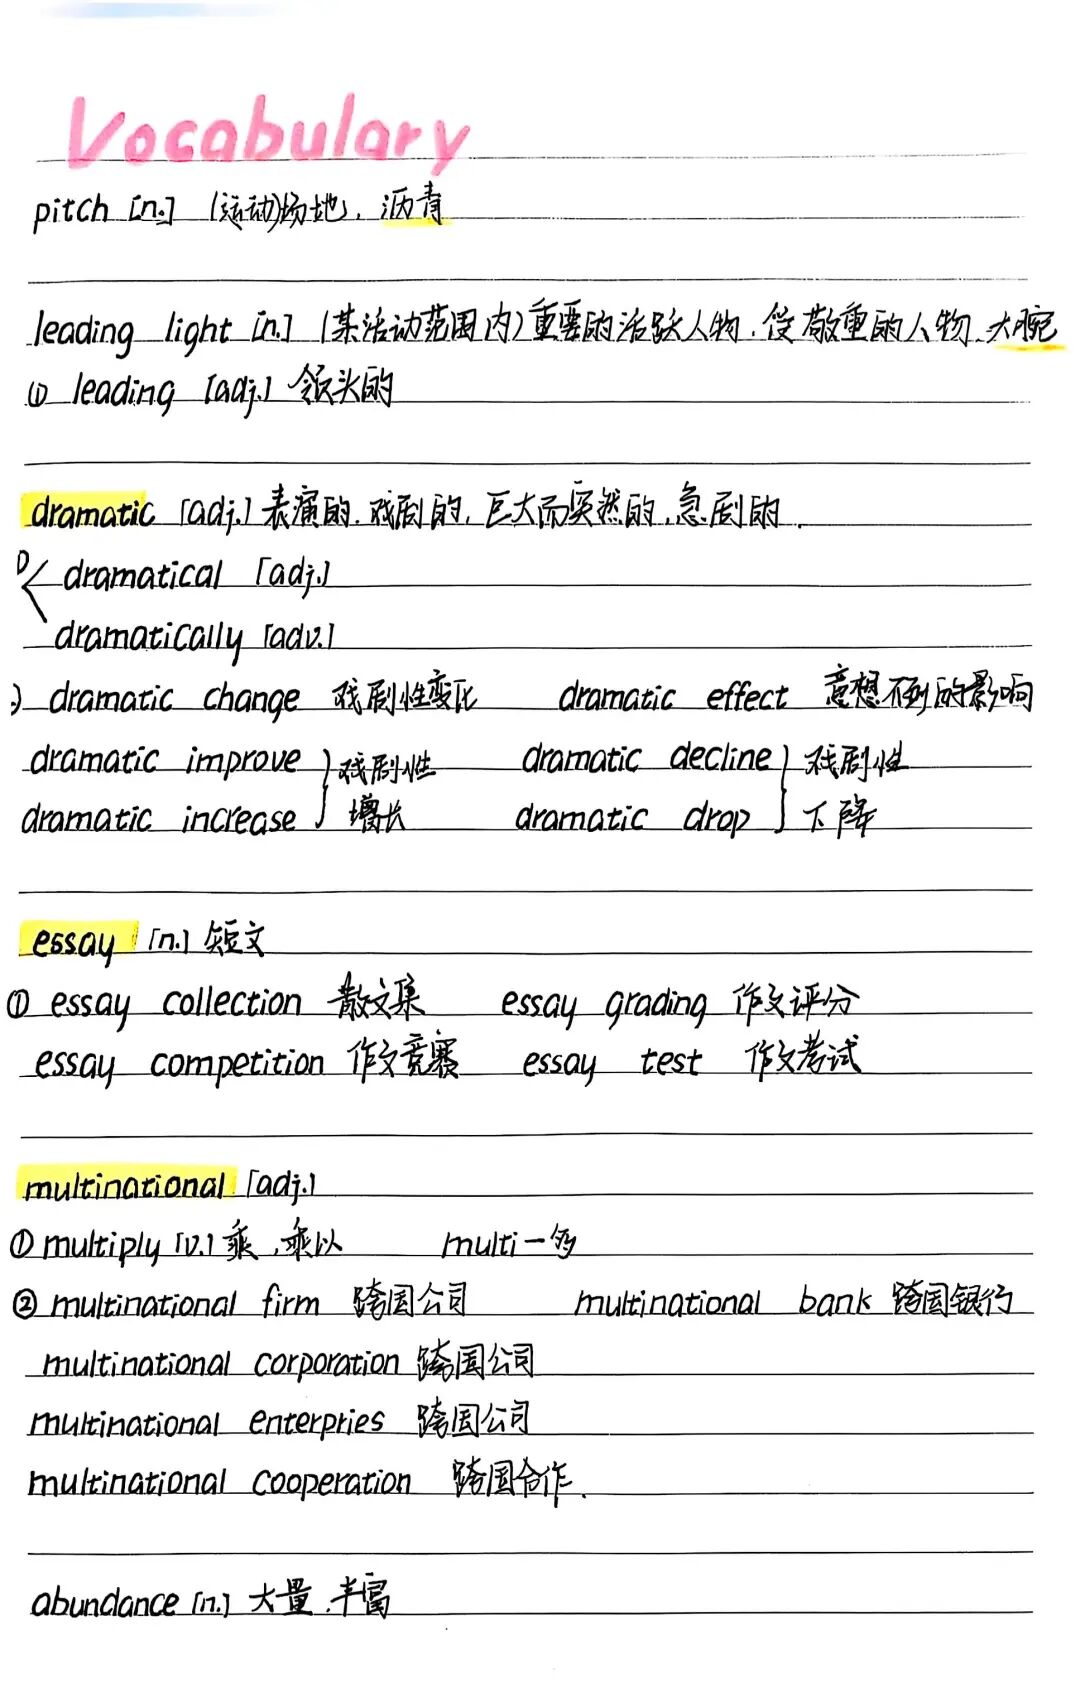 Vocabulary
pitch [n.] (运动)场地, 沥青
leading light [n.] (某活动范围内)重要的活跃人物, 受敬重的人物, 大腕
① leading [adj.] 领头的
dramatic [adj.] 表演的, 戏剧的, 巨大而突然的, 急剧的.
① dramatical [adj.]
dramatically [adv.]
dramatic change 戏剧性变化 dramatic effect 意想不到的影响
dramatic improve 戏剧性 dramatic decline 戏剧性
dramatic increase 增长 dramatic drop 下降
essay [n.] 短文
① essay collection 散文集 essay grading 作文评分
essay competition 作文竞赛 essay test 作文考试
multinational [adj.]
① multiply [v.] 乘, 乘以 multi-多
② multinational firm 跨国公司 multinational bank 跨国银行
multinational corporation 跨国公司
multinational enterpries 跨国公司
multinational cooperation 跨国合作.
abundance [n.] 大量, 丰富